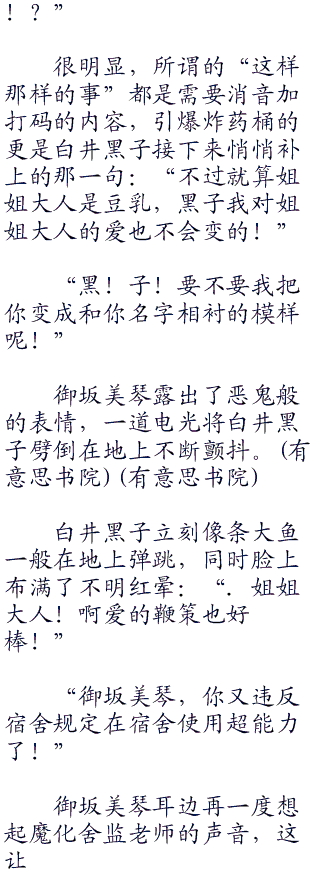 ！？”
很明显，所谓的“这样
那样的事”都是需要消音加
打码的内容，引爆炸药桶的
更是白井黑子接下来悄悄补
上的那一句：“不过就算姐
姐大人是豆乳，黑子我对姐
姐大人的爱也不会变的！”
“黑！子！要不要我把
你变成和你名字相衬的模样
呢！”
御坂美琴露出了恶鬼般
的表情，一道电光将白井黑
子劈倒在地上不断颤抖。(有
意思书院)(有意思书院)
白井黑子立刻像条大鱼
一般在地上弹跳，同时脸上
布满了不明红晕：“．姐姐
大人！啊爱的鞭策也好
棒！”
“御坂美琴，你又违反
宿舍规定在宿舍使用超能力
了！”
御坂美琴耳边再一度想
起魔化舍监老师的声音，这
让